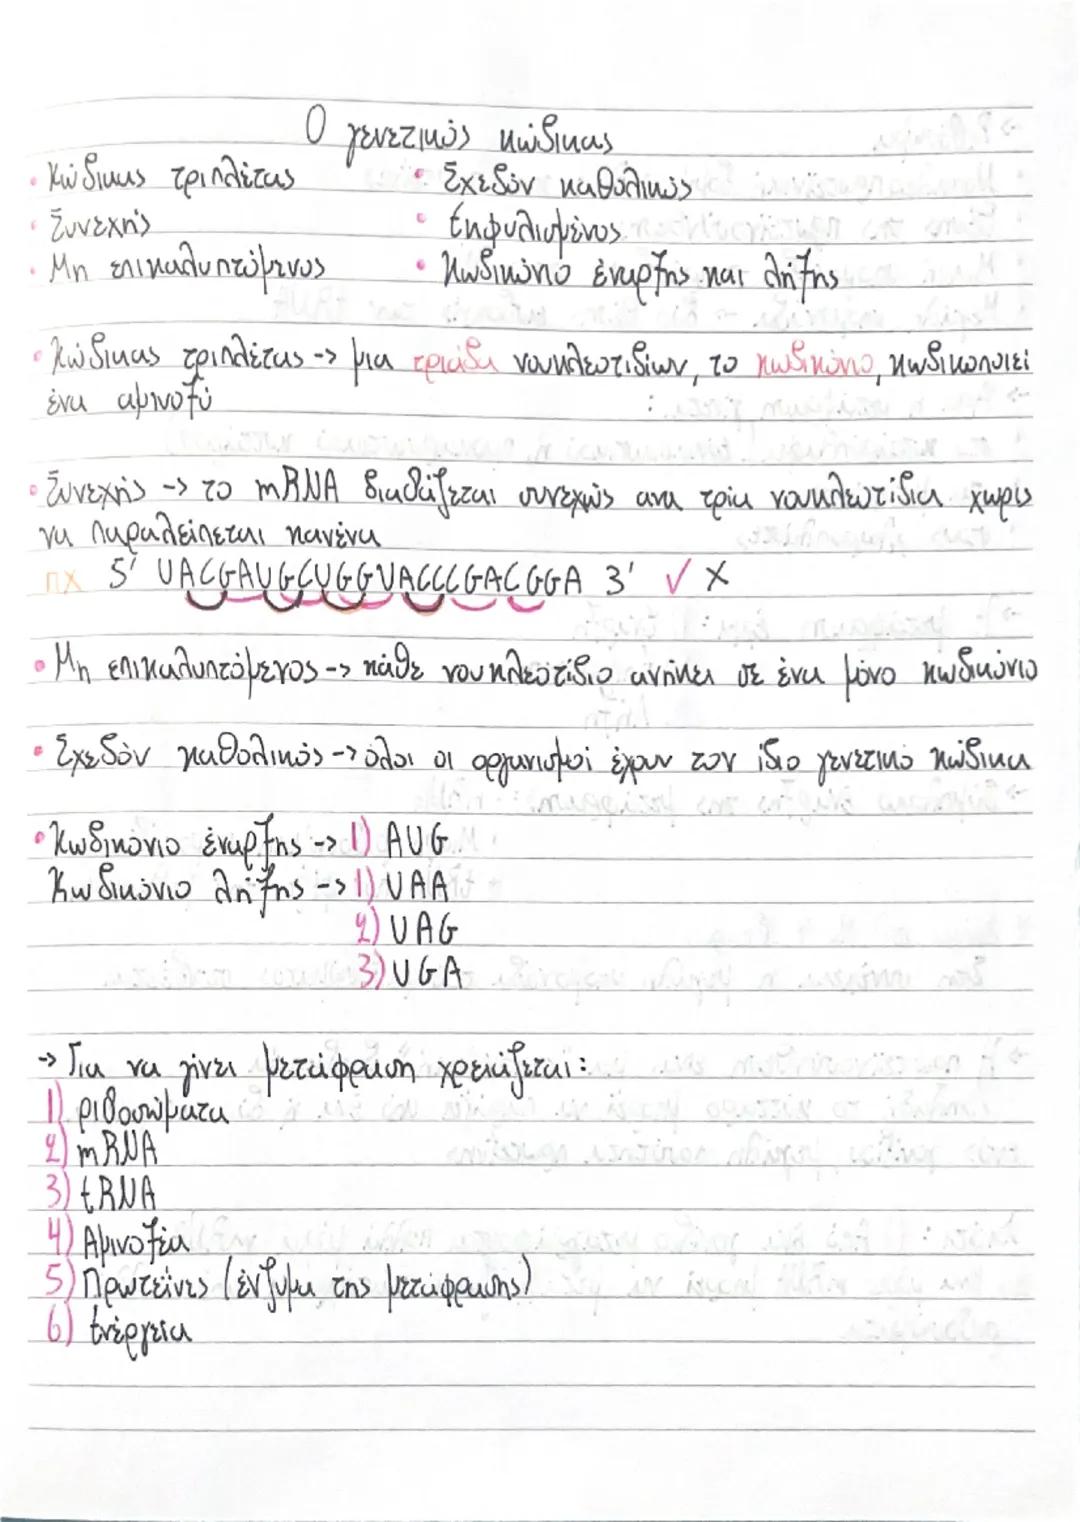 Ο γενετικός κώδικας
• Κώδικας τριπλέτας
• Σχεδόν καθολικός
• Συνεχής
• Εκφυλισμένος
• Μη επικαλυπτόμενος
• Κωδικόνιο έναρξης και λήξης
• Κώδικας τριπλέτας -> μια τριάδα νουκλεοτιδίων, το κωδικόνιο, κωδικοποιεί
ένα αμινοξύ
• Συνεχής -> το mRNA διαβάζεται συνεχώς ανα τρία νουκλεοτίδια χωρίς
να παραλείπεται κανένα
πχ 5' UACGAUGCUGGUACCCGACGGA 3' ✓ X
• Μη επικαλυπτόμενος -> κάθε νουκλεοτίδιο ανήκει σε ένα μόνο κωδικόνιο
• Σχεδόν καθολικός -> όλοι οι οργανισμοί έχουν τον ίδιο γενετικό κώδικα
• Κωδικόνιο έναρξης -> 1) AUG
Κωδικόνιο λήξης -> 1) UAA
2) UAG
3) UGA
-> Για να γίνει μετάφραση χρειάζεται:
1) ριβοσώματα
2) mRNA
3) tRNA
4) Αμινοξέα
5) Πρωτεΐνες (ένζυμα της μετάφρασης)
6) Ενέργεια